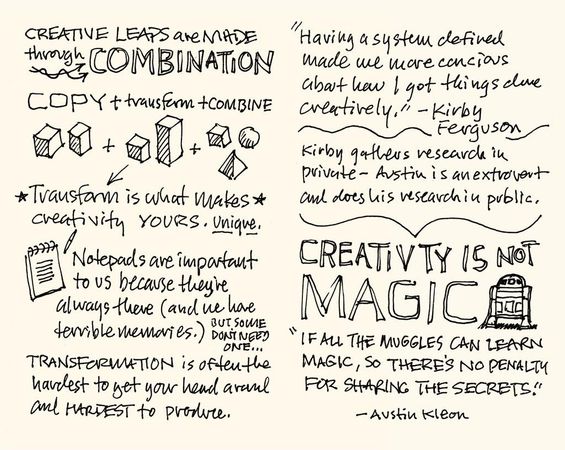 CREATIVE LEAPS are MADE
through COMBINATION
COPY + transform + COMBINE
+ +
★Transform is what makes★
creativity YOURS. Unique.
Notepads are important
to us because they're
always there (and we have
terrible memories.) BUT SOME
DON'T NEED
ONE...
TRANSFORMATION is often the
hardest to get your head around
and HARDEST to produce.
"Having a system defined
made me more concious
about how I got things done
creatively." - Kirby
Ferguson
Kirby gathers research in
private - Austin is an extrovert
and does his research in public.
CREATIVTY IS NOT
MAGIC
"IF ALL THE MUGGLES CAN LEARN
MAGIC, SO THERE'S NO PENALTY
FOR SHARING THE SECRETS."
- Austin Kleon